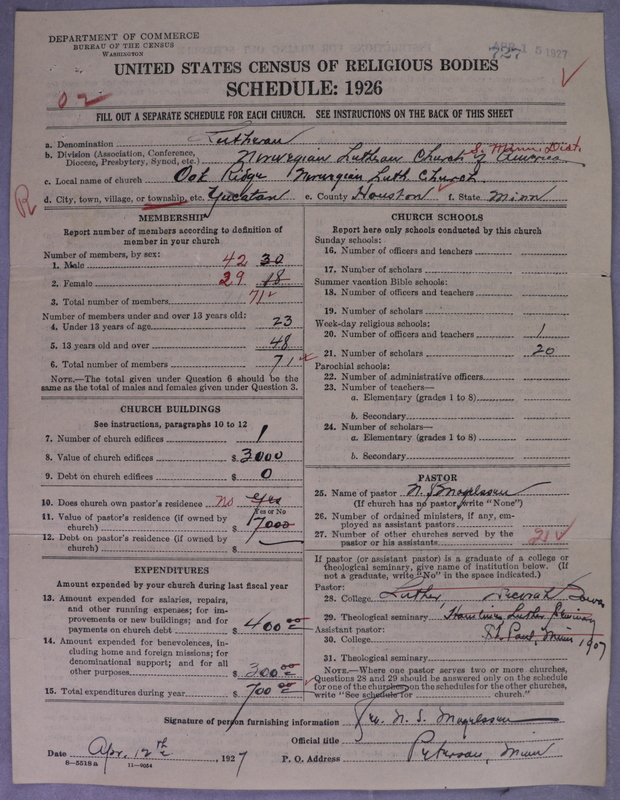 DEPARTMENT OF COMMERCE
BUREAU OF THE CENSUS
WASHINGTON
727
APR 15 1927
UNITED STATES CENSUS OF RELIGIOUS BODIES
SCHEDULE: 1926
FILL OUT A SEPARATE SCHEDULE FOR EACH CHURCH. SEE INSTRUCTIONS ON THE BACK OF THIS SHEET
a. Denomination Lutheran
b. Division (Association, Conference, Diocese, Presbytery, Synod, etc.) Norwegian Lutheran Church of America S. Minn. Dist.
c. Local name of church Oak Ridge Norwegian Luth. Church.
d. City, town, village, or township, etc. Yucatan e. County Houston f. State Minn
R
MEMBERSHIP
Report number of members according to definition of member in your church
Number of members, by sex:
1. Male 42 30
2. Female 29 18
3. Total number of members 71
Number of members under and over 13 years old:
4. Under 13 years of age 23
5. 13 years old and over 48
6. Total number of members 71
NOTE.—The total given under Question 6 should be the same as the total of males and females given under Question 3.
CHURCH BUILDINGS
See instructions, paragraphs 10 to 12
7. Number of church edifices 1
8. Value of church edifices $ 3000
9. Debt on church edifices $ 0
10. Does church own pastor's residence no yes
Yes or No
11. Value of pastor's residence (if owned by church) $ 7000
12. Debt on pastor's residence (if owned by church) $
EXPENDITURES
Amount expended by your church during last fiscal year
13. Amount expended for salaries, repairs, and other running expenses; for improvements or new buildings; and for payments on church debt $ 400 00
14. Amount expended for benevolences, including home and foreign missions; for denominational support; and for all other purposes $ 300 00
15. Total expenditures during year $ 700 00
CHURCH SCHOOLS
Report here only schools conducted by this church
Sunday schools:
16. Number of officers and teachers
17. Number of scholars
Summer vacation Bible schools:
18. Number of officers and teachers
19. Number of scholars
Week-day religious schools:
20. Number of officers and teachers 1
21. Number of scholars 20
Parochial schools:
22. Number of administrative officers
23. Number of teachers—
a. Elementary (grades 1 to 8)
b. Secondary
24. Number of scholars—
a. Elementary (grades 1 to 8)
b. Secondary
PASTOR
25. Name of pastor N. S. Magelssen
(If church has no pastor, write "None")
26. Number of ordained ministers, if any, employed as assistant pastors
27. Number of other churches served by the pastor or his assistants
If pastor (or assistant pastor) is a graduate of a college or theological seminary, give name of institution below. (If not a graduate, write "No" in the space indicated.)
Pastor:
28. College Luther, Decorah Iowa
29. Theological seminary Luther Seminary
Assistant pastor: St. Paul, Minn 1907
30. College
31. Theological seminary
NOTE.—Where one pastor serves two or more churches, Questions 28 and 29 should be answered only on the schedule for one of the churches; on the schedules for the other churches, write "See schedule for church."
Signature of person furnishing information N. S. Magelssen
Official title
Date Apr. 12th, 1927 P. O. Address Peterson, Minn
8-5518a 11-9054